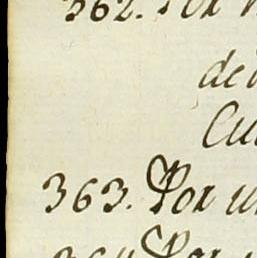 362. Por
de
Cu
363. Por u
364. Por